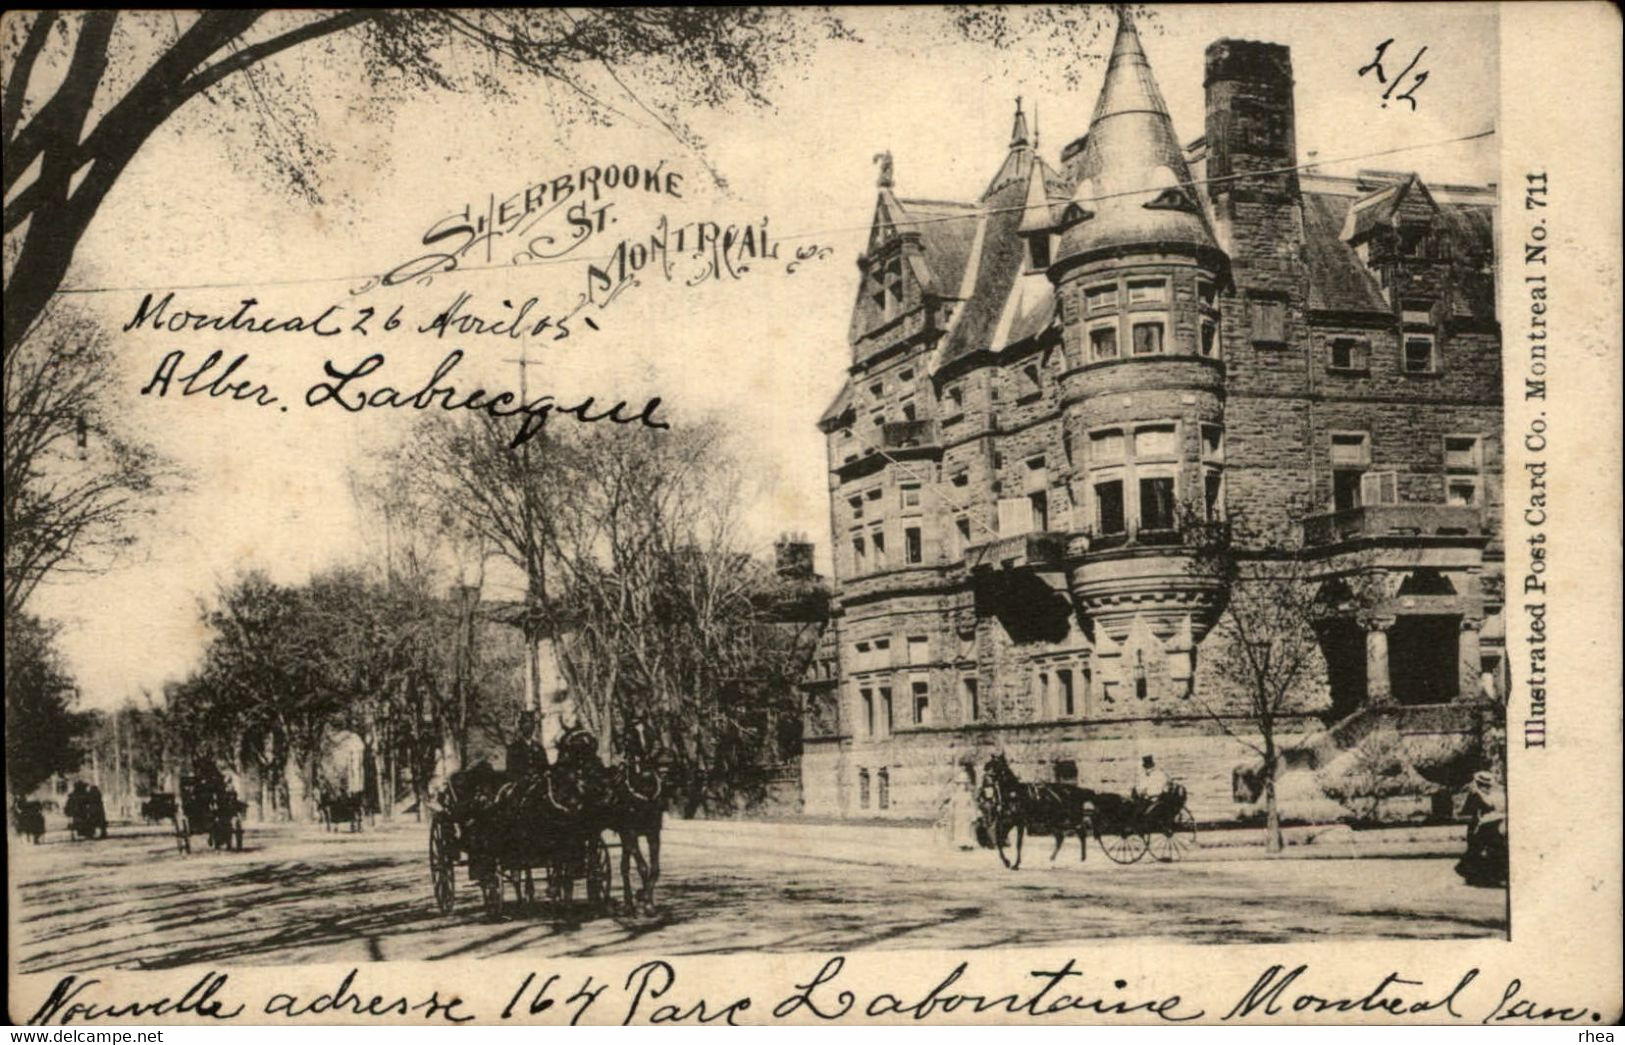 2/2
SHERBROOKE
ST.
MONTREAL
Montreal 26 Avril 05-
Alber. Labrecque
Illustrated Post Card Co. Montreal No. 711
Nouvelle adresse 164 Parc Labontaine Montreal
rhea